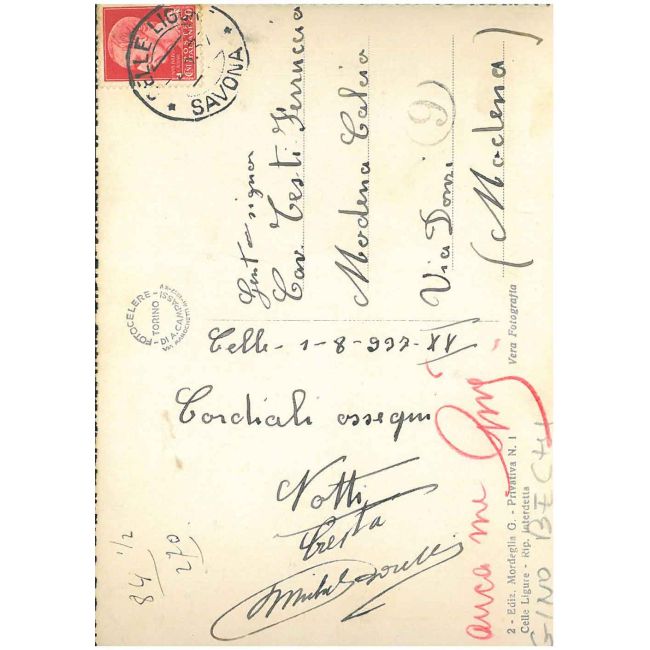 CELLE LIGURE
SAVONA
Gent. signor
Cav. Testi Ferruccio
Modena Calcio
Via Donzi (9)
(Modena)
FOTOCELERE - TORINO - DI A. CAMPASSI
Celle - 1-8-937-XV
Cordiali ossequi
Notti
Cresta
anca me Gino
84 1/2
270
Vera Fotografia
2 - Ediz. Mordeglia G. - Privativa N. 1
Celle Ligure - Rip. Interdetta
GINO BECHI